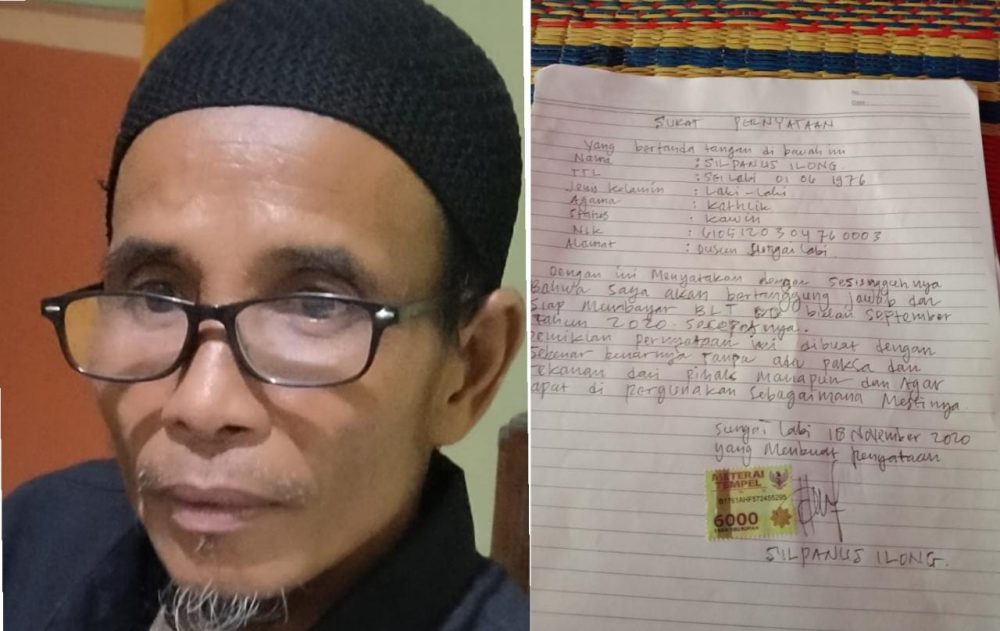 No.
Date.
SURAT PERNYATAAN
Yang bertanda tangan di bawah ini
Nama : SILPANUS ILONG
TTL : SEI Labi 01 04 1976
Jenis Kelamin : Laki-Labi
Agama : Katholik
Status : Kawin
Nik : 6105120304760003
Alamat : Dusun Sungai Labi
Dengan ini Menyatakan dengan Sesungguhnya
Bahwa Saya akan bertanggung jawab dan
Siap Membayar BLT bulan September
Tahun 2020. secepatnya.
Demikian pernyataan ini dibuat dengan
Sebenar benarnya Tanpa ada paksa dan
Tekanan dari pihak Manapun dan Agar
dapat di pergunakan Sebagaimana Mestinya.
Sungai Labi 18 November 2020
yang Membuat penyataan
METERAI
TEMPEL
6000
SILPANUS ILONG.